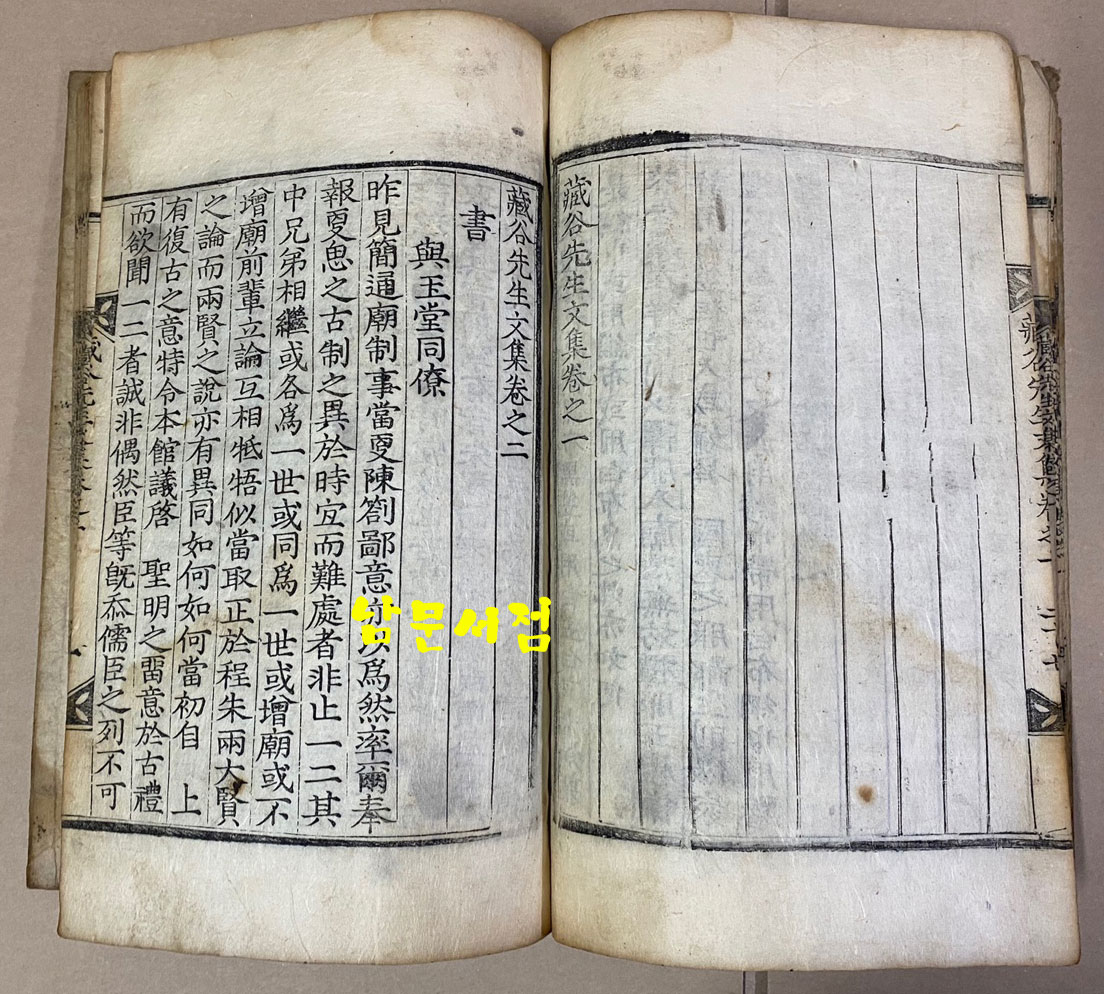 藏谷先生文集卷之一
藏谷先生文集卷之二
書
與玉堂同僚
昨見簡通廟制事當更陳箚鄙意亦以爲然率爾奉
報更思之古制之異於時宜而難處者非止一二其
中兄弟相繼或各爲一世或同爲一世或增廟或不
增廟前輩立論互相牴牾似當取正於程朱兩大賢
之論而兩賢之說亦有異同如何如何當初自 上
有復古之意特令本館議啓 聖明之留意於古禮
而欲聞一二者誠非偶然臣等旣忝儒臣之列不可
남문서점